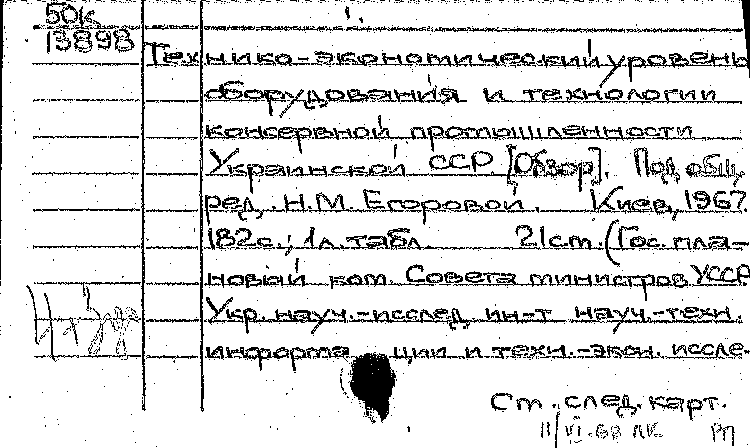 50к
13898
Технико-экономический уровень
оборудования и технологии
консервной промышленности
Украинской ССР [Обзор]. Под общ.
ред. Н.М. Егоровой. Киев, 1967.
182с.; 1л. табл. 21см. (Гос. пла-
новый ком. Совета министров УССР.
Укр. науч.-исслед. ин-т науч.-техн.
информации и техн.-экон. иссле-
См. след. карт.
11/VI-68 ЛК РП